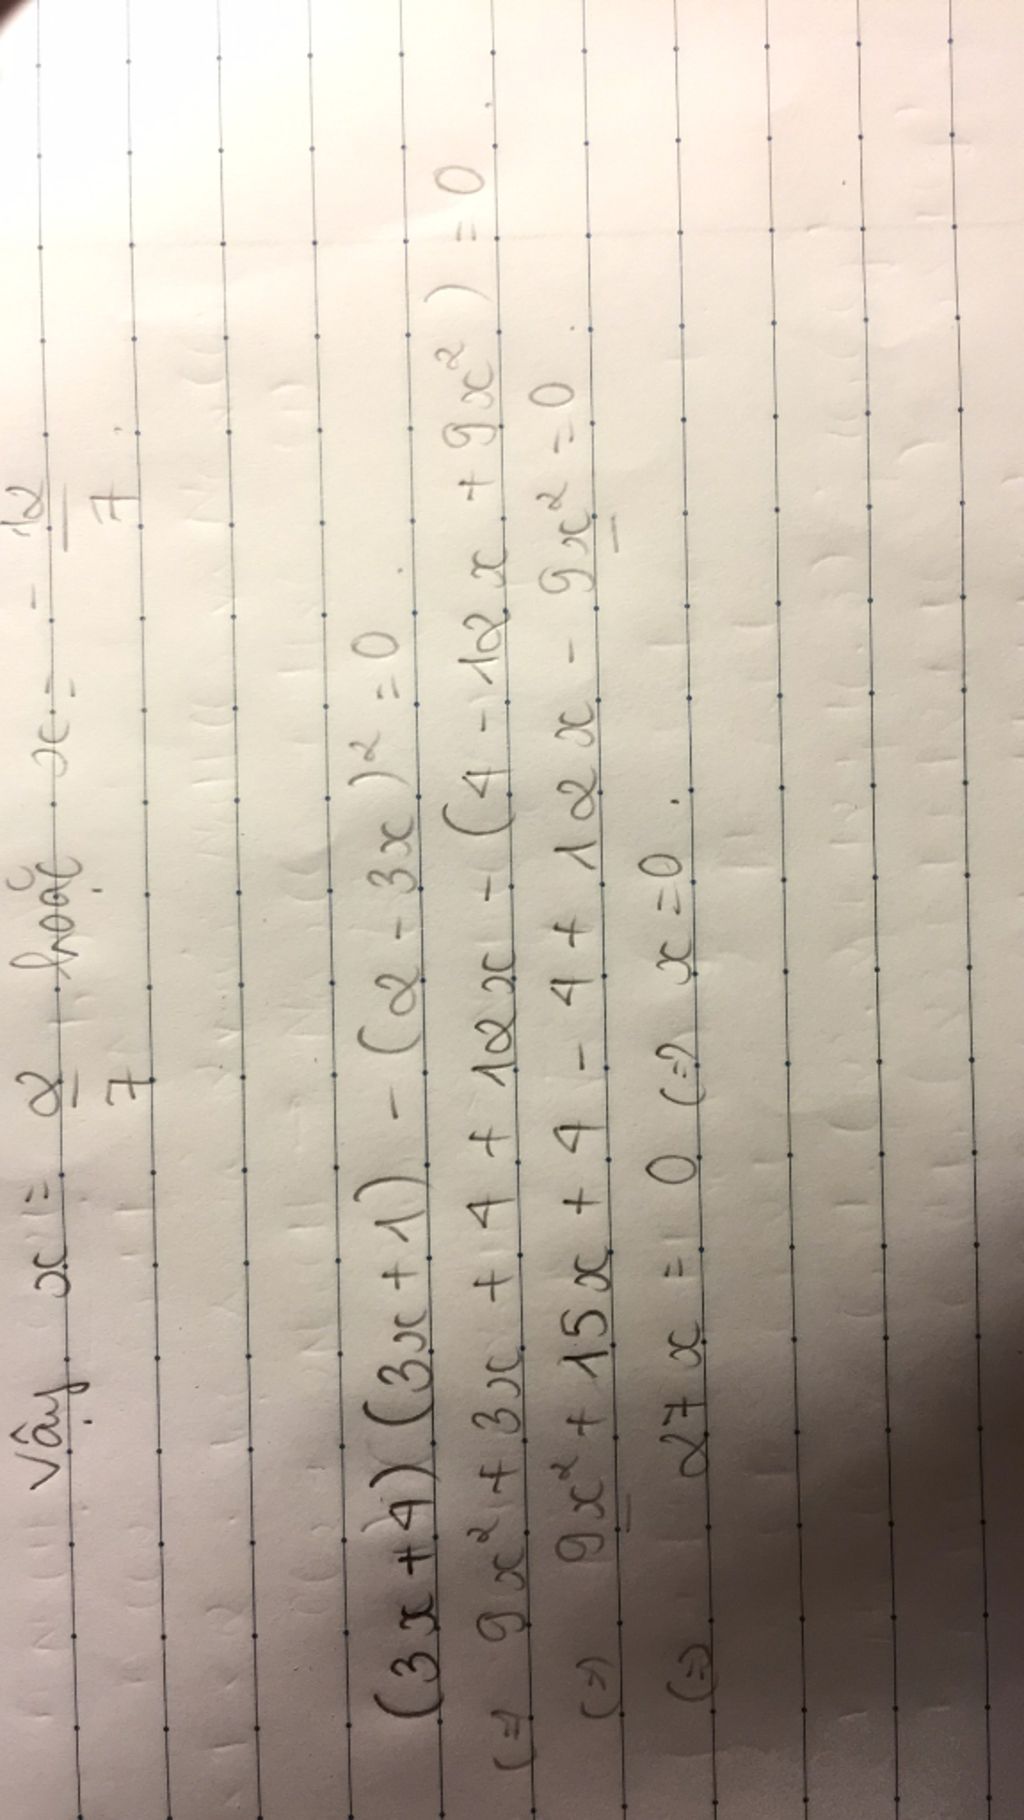 Vậy x = 2/7 hoặc x = - 12/7
(3x + 4)(3x + 1) - (2 - 3x)² = 0
(=) 9x² + 3x + 4 + 12x - (4 - 12x + 9x²) = 0
(=) 9x² + 15x + 4 - 4 + 12x - 9x² = 0
(=) 27x = 0 (=) x = 0